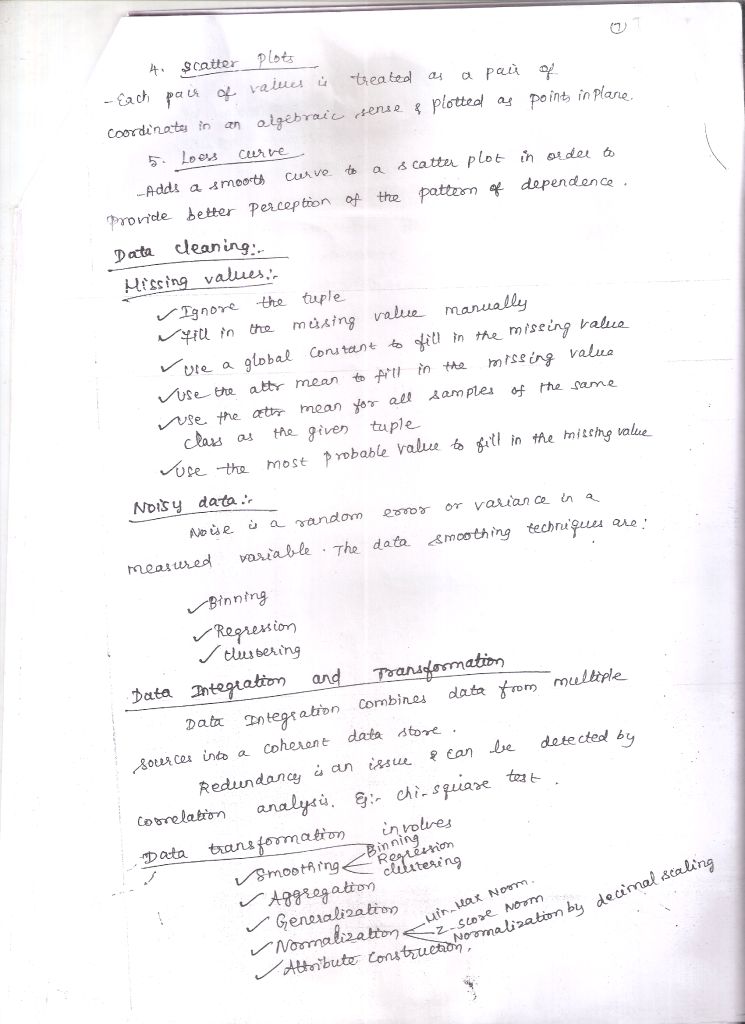 7
4. Scatter plots
- Each pair of values is treated as a pair of
coordinates in an algebraic sense & plotted as points in plane.
5. Loess curve
- Adds a smooth curve to a scatter plot in order to
provide better perception of the pattern of dependence.
Data cleaning:-
Missing values:-
✓ Ignore the tuple
✓ Fill in the missing value manually
✓ Use a global constant to fill in the missing value
✓ Use the attr mean to fill in the missing value
✓ Use the attr mean for all samples of the same
class as the given tuple
✓ Use the most probable value to fill in the missing value
Noisy data:-
Noise is a random error or variance in a
measured variable. The data smoothing techniques are:
✓ Binning
✓ Regression
✓ Clustering
Data Integration and Transformation
Data Integration combines data from multiple
sources into a coherent data store.
Redundancy is an issue & can be detected by
correlation analysis. Eg:- chi-square test.
Data transformation involves
✓ Smoothing Binning
Regression
clustering
✓ Aggregation
✓ Generalization
✓ Normalization Min-Max Norm.
Z-score Norm
Normalization by decimal scaling
✓ Attribute Construction.